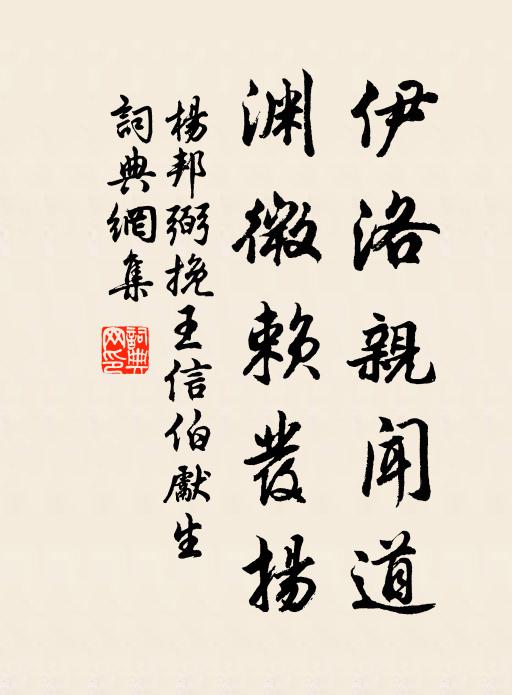 伊洛親聞道
淵微賴發揚
楊邦弼挽王信伯獻生
詞典網集
詞典網印